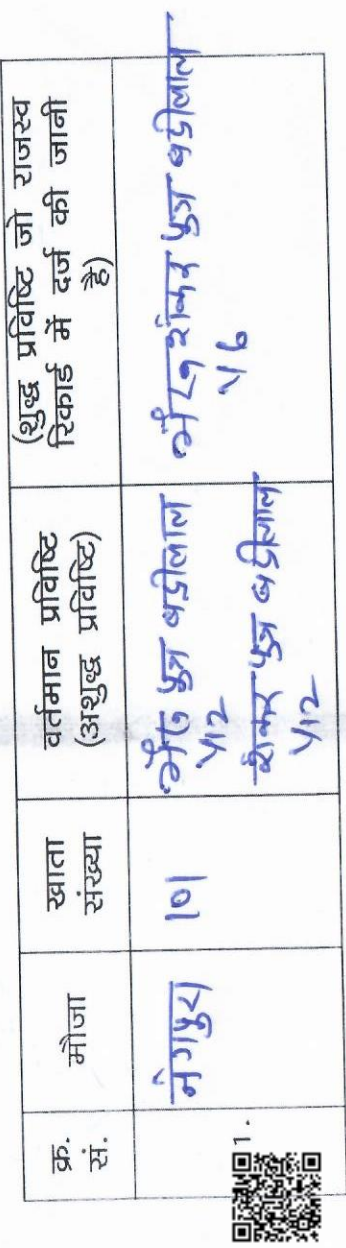 क्र.
सं.
मौजा
खाता
संख्या
वर्तमान प्रविष्टि
(अशुद्ध प्रविष्टि)
(शुद्ध प्रविष्टि जो राजस्व
रिकार्ड में दर्ज की जानी
है)
1.
101
पुत्र बद्रीलाल
1/12
शंकर पुत्र बद्रीलाल
1/12
पुत्र बद्रीलाल
1/6